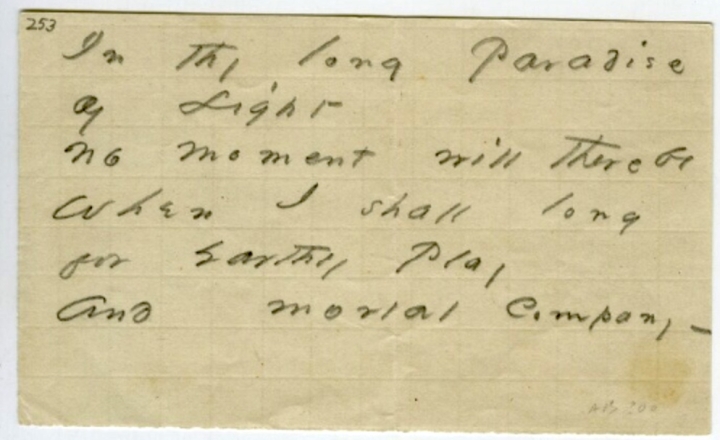 253
In thy long Paradise
of Light
no moment will there be
When I shall long
for Earthly Play
And mortal Company —